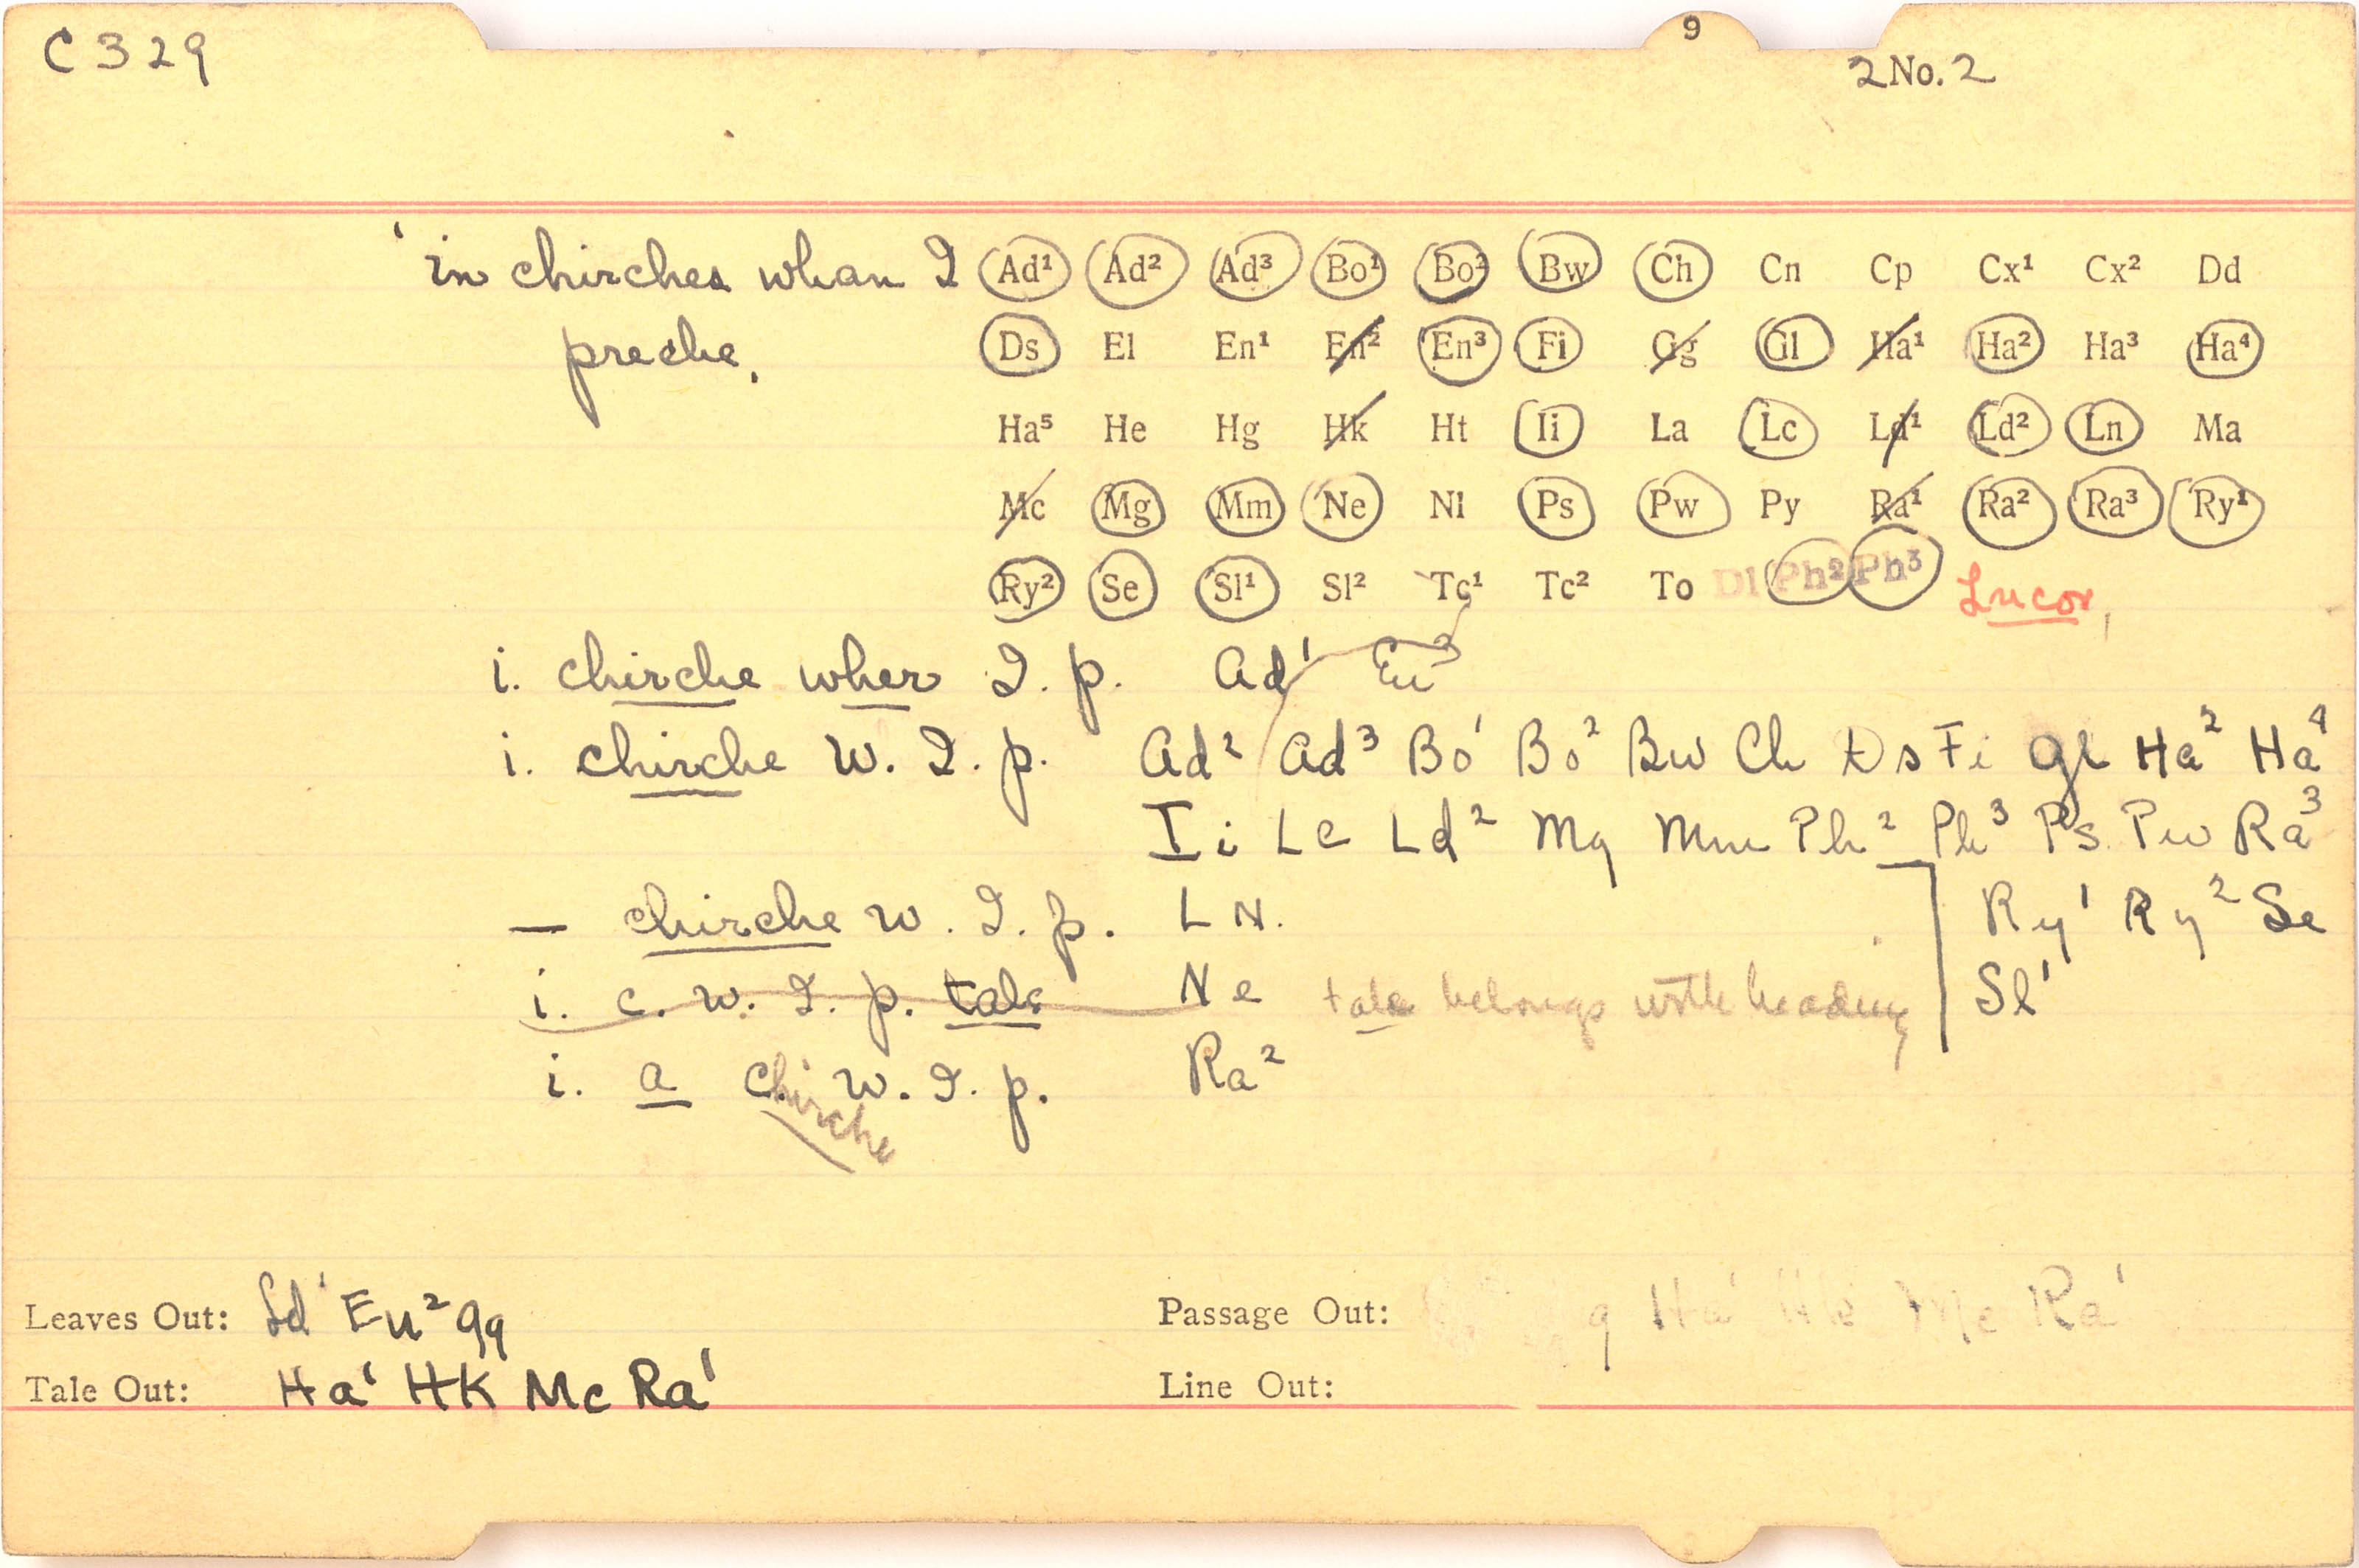 C 329
9
2 No. 2
'in chirches whan I Ad¹ Ad² Ad³ Bo¹ Bo² Bw Ch Cn Cp Cx¹ Cx² Dd
preche. Ds El En¹ En² En³ Fi Gg Gl Ha¹ Ha² Ha³ Ha⁴
Ha⁵ He Hg Hk Ht Ii La Lc Ld¹ Ld² Ln Ma
Mc Mg Mm Ne Nl Ps Pw Py Ra¹ Ra² Ra³ Ry¹
Ry² Se Sl¹ Sl² Tc¹ Tc² To Dl Ph² Ph³ Lucor
i. chirche wher I. p. Ad¹ En³
i. chirche w. I. p. Ad² Ad³ Bo¹ Bo² Bw Ch Ds Fi Gl Ha² Ha⁴
Ii Lc Ld² Mg Mm Ph² Ph³ Ps Pw Ra³
— chirche w. I. p. LN. Ry¹ Ry² Se
i. c. w. I. p. tale Ne tale belongs with heading Sl¹
i. a c. w. I. p. Ra²
chirche
Leaves Out: Ld¹ En² Gg
Passage Out: g Ha¹ Hk Mc Ra¹
Tale Out: Ha¹ HK Mc Ra¹
Line Out: